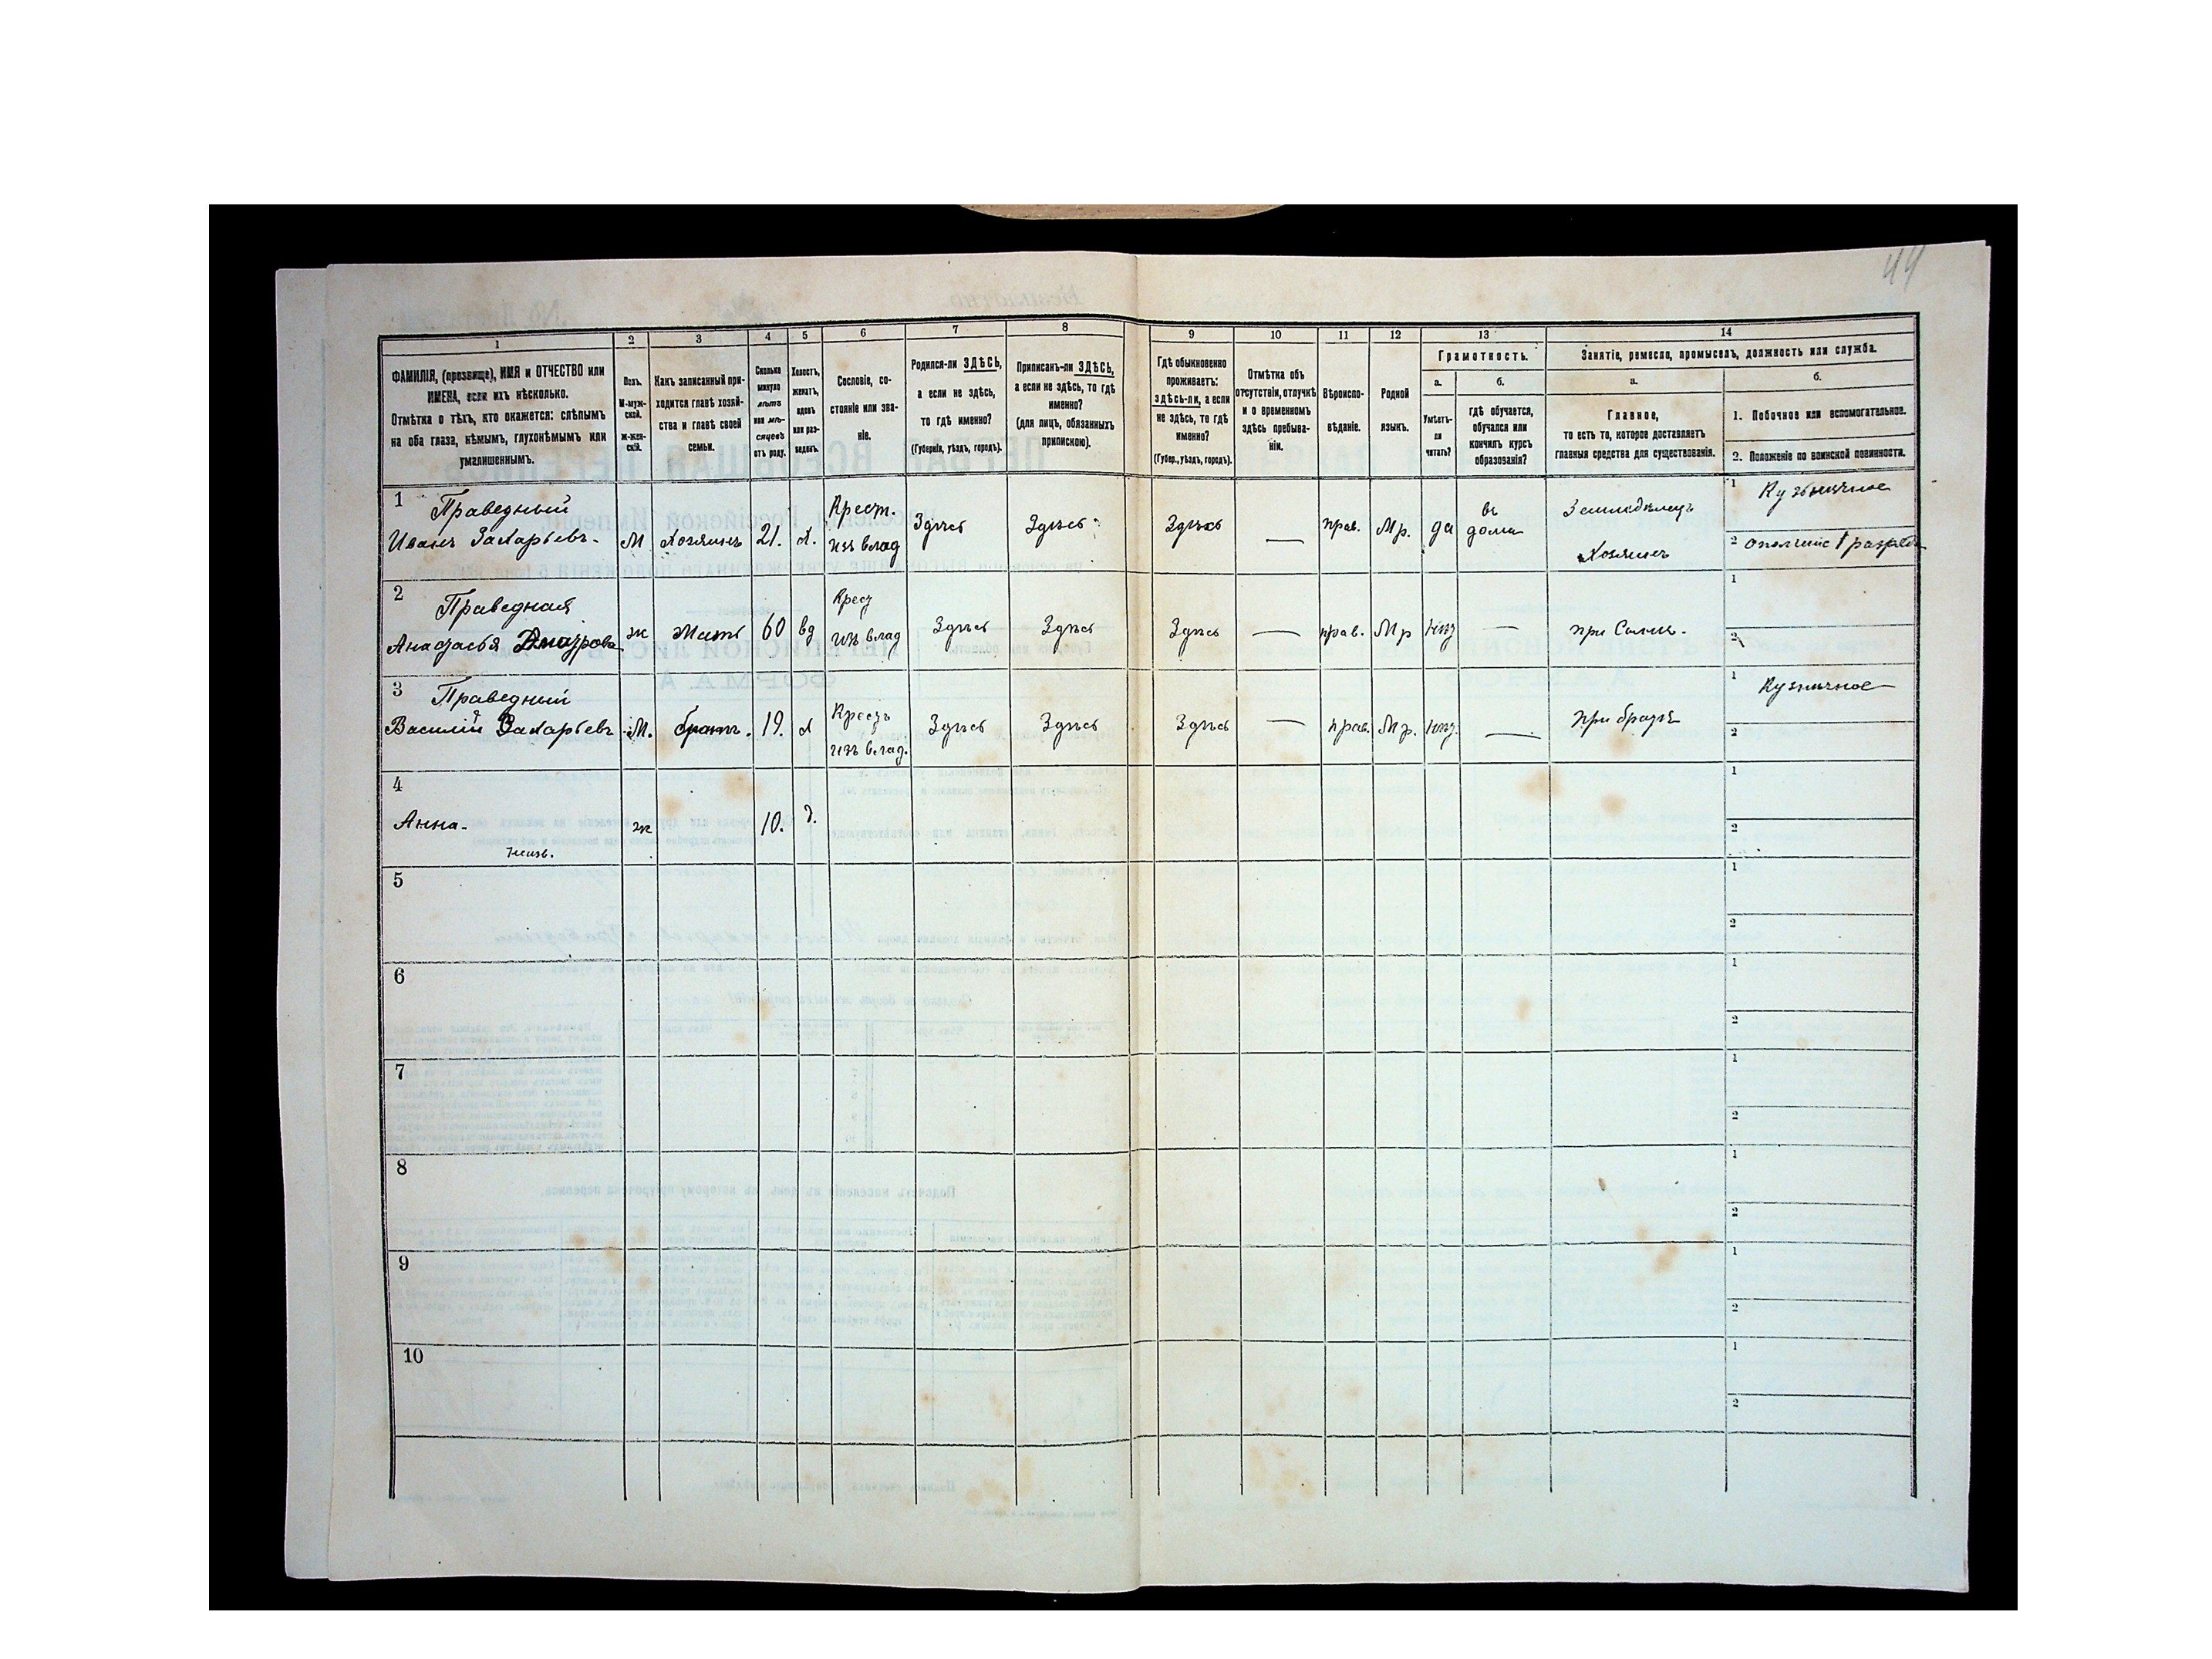 44
1
2
3
4
5
6
7
8
9
10
11
12
13
14
ФАМИЛІЯ, (прозвище), ИМЯ и ОТЧЕСТВО или
ИМЕНА, если ихъ нѣсколько.
Отмѣтка о тѣхъ, кто окажется: слѣпымъ
на оба глаза, нѣмымъ, глухонѣмымъ или
умалишеннымъ.
Полъ.
М-муж-
ской.
ж-жен-
скій.
Какъ записанный при-
ходится главѣ хозяй-
ства и главѣ своей
семьи.
Сколько
минуло
лѣтъ
или мѣ-
сяцевъ
отъ роду.
Холостъ,
женатъ,
вдовъ
или раз-
веденъ.
Сословіе, со-
стояніе или зва-
ніе.
Родился-ли ЗДѢСЬ,
а если не здѣсь,
то гдѣ именно?
(Губернія, уѣздъ, городъ).
Приписанъ-ли ЗДѢСЬ,
а если не здѣсь, то гдѣ
именно?
(для лицъ, обязанныхъ
припискою).
Гдѣ обыкновенно
проживаетъ:
здѣсь-ли, а если
не здѣсь, то гдѣ
именно?
(Губер., уѣздъ, городъ).
Отмѣтка объ
отсутствіи, отлучкѣ
и о временномъ
здѣсь пребыва-
ніи.
Вѣроиспо-
вѣданіе.
Родной
языкъ.
Грамотность.
а.
б.
Умѣетъ-
ли
читать?
гдѣ обучается,
обучался или
кончилъ курсъ
образованія?
Занятіе, ремесло, промыселъ, должность или служба.
а.
б.
Главное,
то есть то, которое доставляетъ
главныя средства для существованія.
1. Побочное или вспомогательное.
2. Положеніе по воинской повинности.
1
Праведный
Иванъ Захарьевъ.
М
Хозяинъ
21.
х.
Крест.
изъ влад
Здѣсь
Здѣсь
Здѣсь
—
прав.
Мр.
да
въ
дома
Земледѣлецъ
Хозяинъ
1
Кузничное
2
1 разряда
2
Праведная
Анастасья Дмитрова
ж
Мать
60
вд
Крест
изъ влад
Здѣсь
Здѣсь
Здѣсь
—
прав.
Мр
нѣт
—
при Сынѣ.
1
2
3
Праведный
Василій Захарьевъ
М.
братъ.
19.
х
Крестъ
изъ влад.
Здѣсь
Здѣсь
Здѣсь
—
прав.
Мр.
нѣт.
—
при братѣ
1
Кузничное
2
4
Анна.
ж
10.
д.
1
2
5
1
2
6
1
2
7
1
2
8
1
2
9
1
2
10
1
2